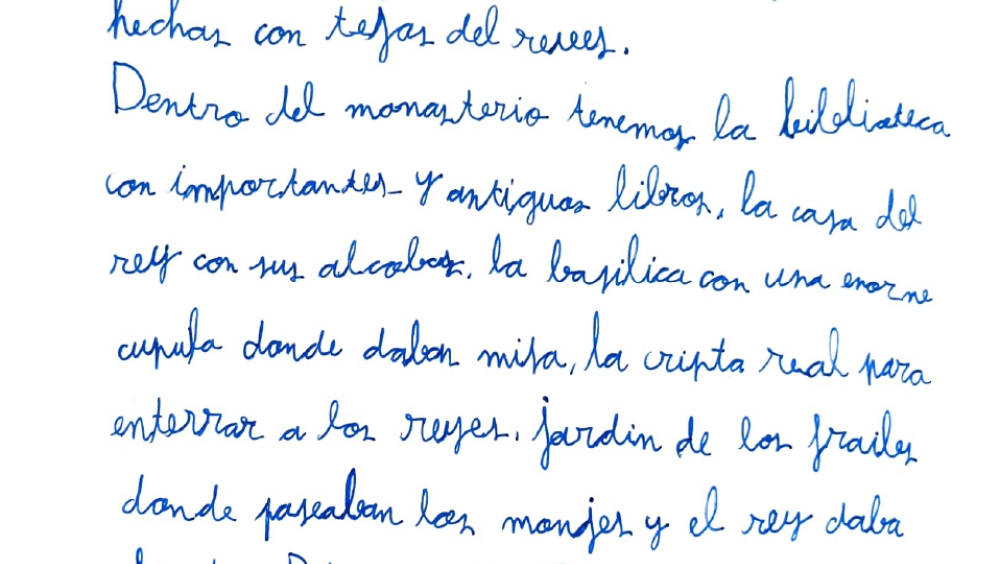 hechas con tejas del revés.
Dentro del monasterio tenemos la biblioteca
con importantes y antiguos libros, la casa del
rey con sus alcobas, la basilica con una enorme
cupula donde daban misa, la cripta real para
enterrar a los reyes, jardin de los frailes
donde paseaban los monjes y el rey daba